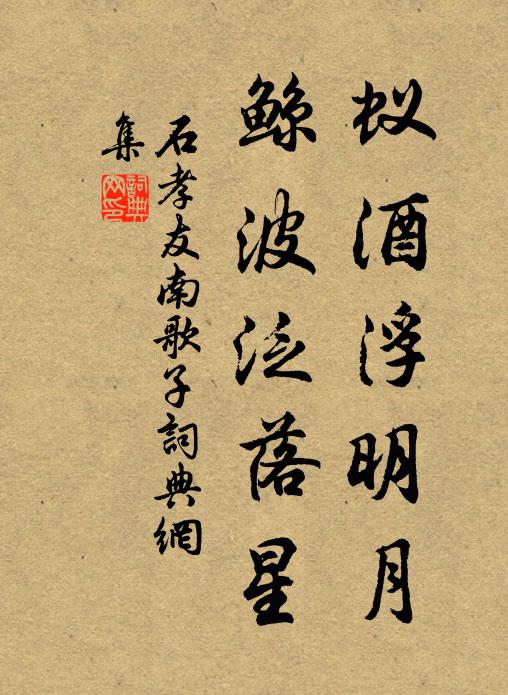 蚁酒浮明月
鲸波泛落星
石孝友南歌子詞典網
集
詞典網印